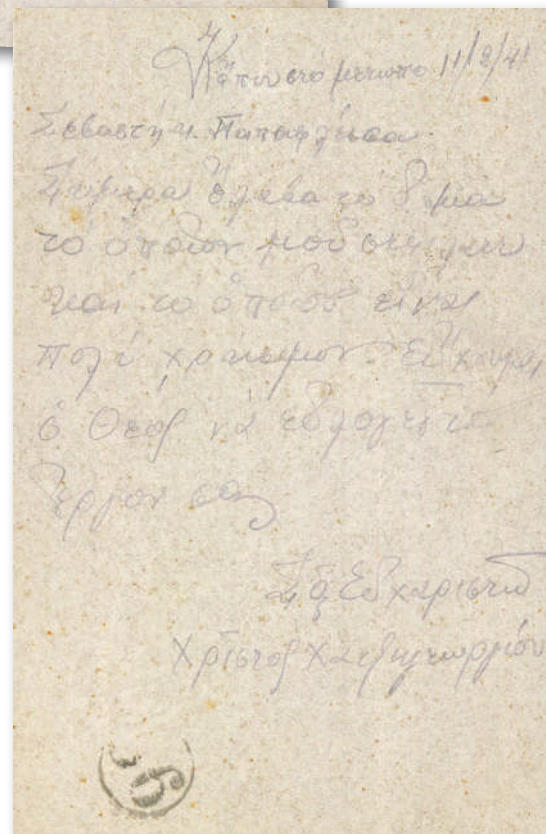 Κάπου στο μέτωπο 11/2/41
Σεβαστή κ. Παπαφλέσσα
Σήμερα ἔλαβα το δέμα
το ὁποίον μοῦ στείλατε
και το ὁποῖον εἶναι
πολύ χρήσιμον. Εὔχομαι
ὁ Θεός νά εὐλογεῖ τό
ἔργον σας
Σᾶς Εὐχαριστῶ
Χρῖστος Χατζηγεωργίου